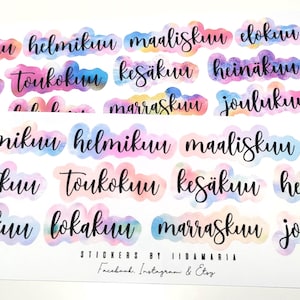 helmikuu maaliskuu elokuu
toukokuu kesäkuu heinäkuu
marraskuu joulukuu
helmikuu maaliskuu
toukokuu kesäkuu
lokakuu marraskuu
STICKERS BY IIDAMARIA
Facebook, Instagram & Etsy